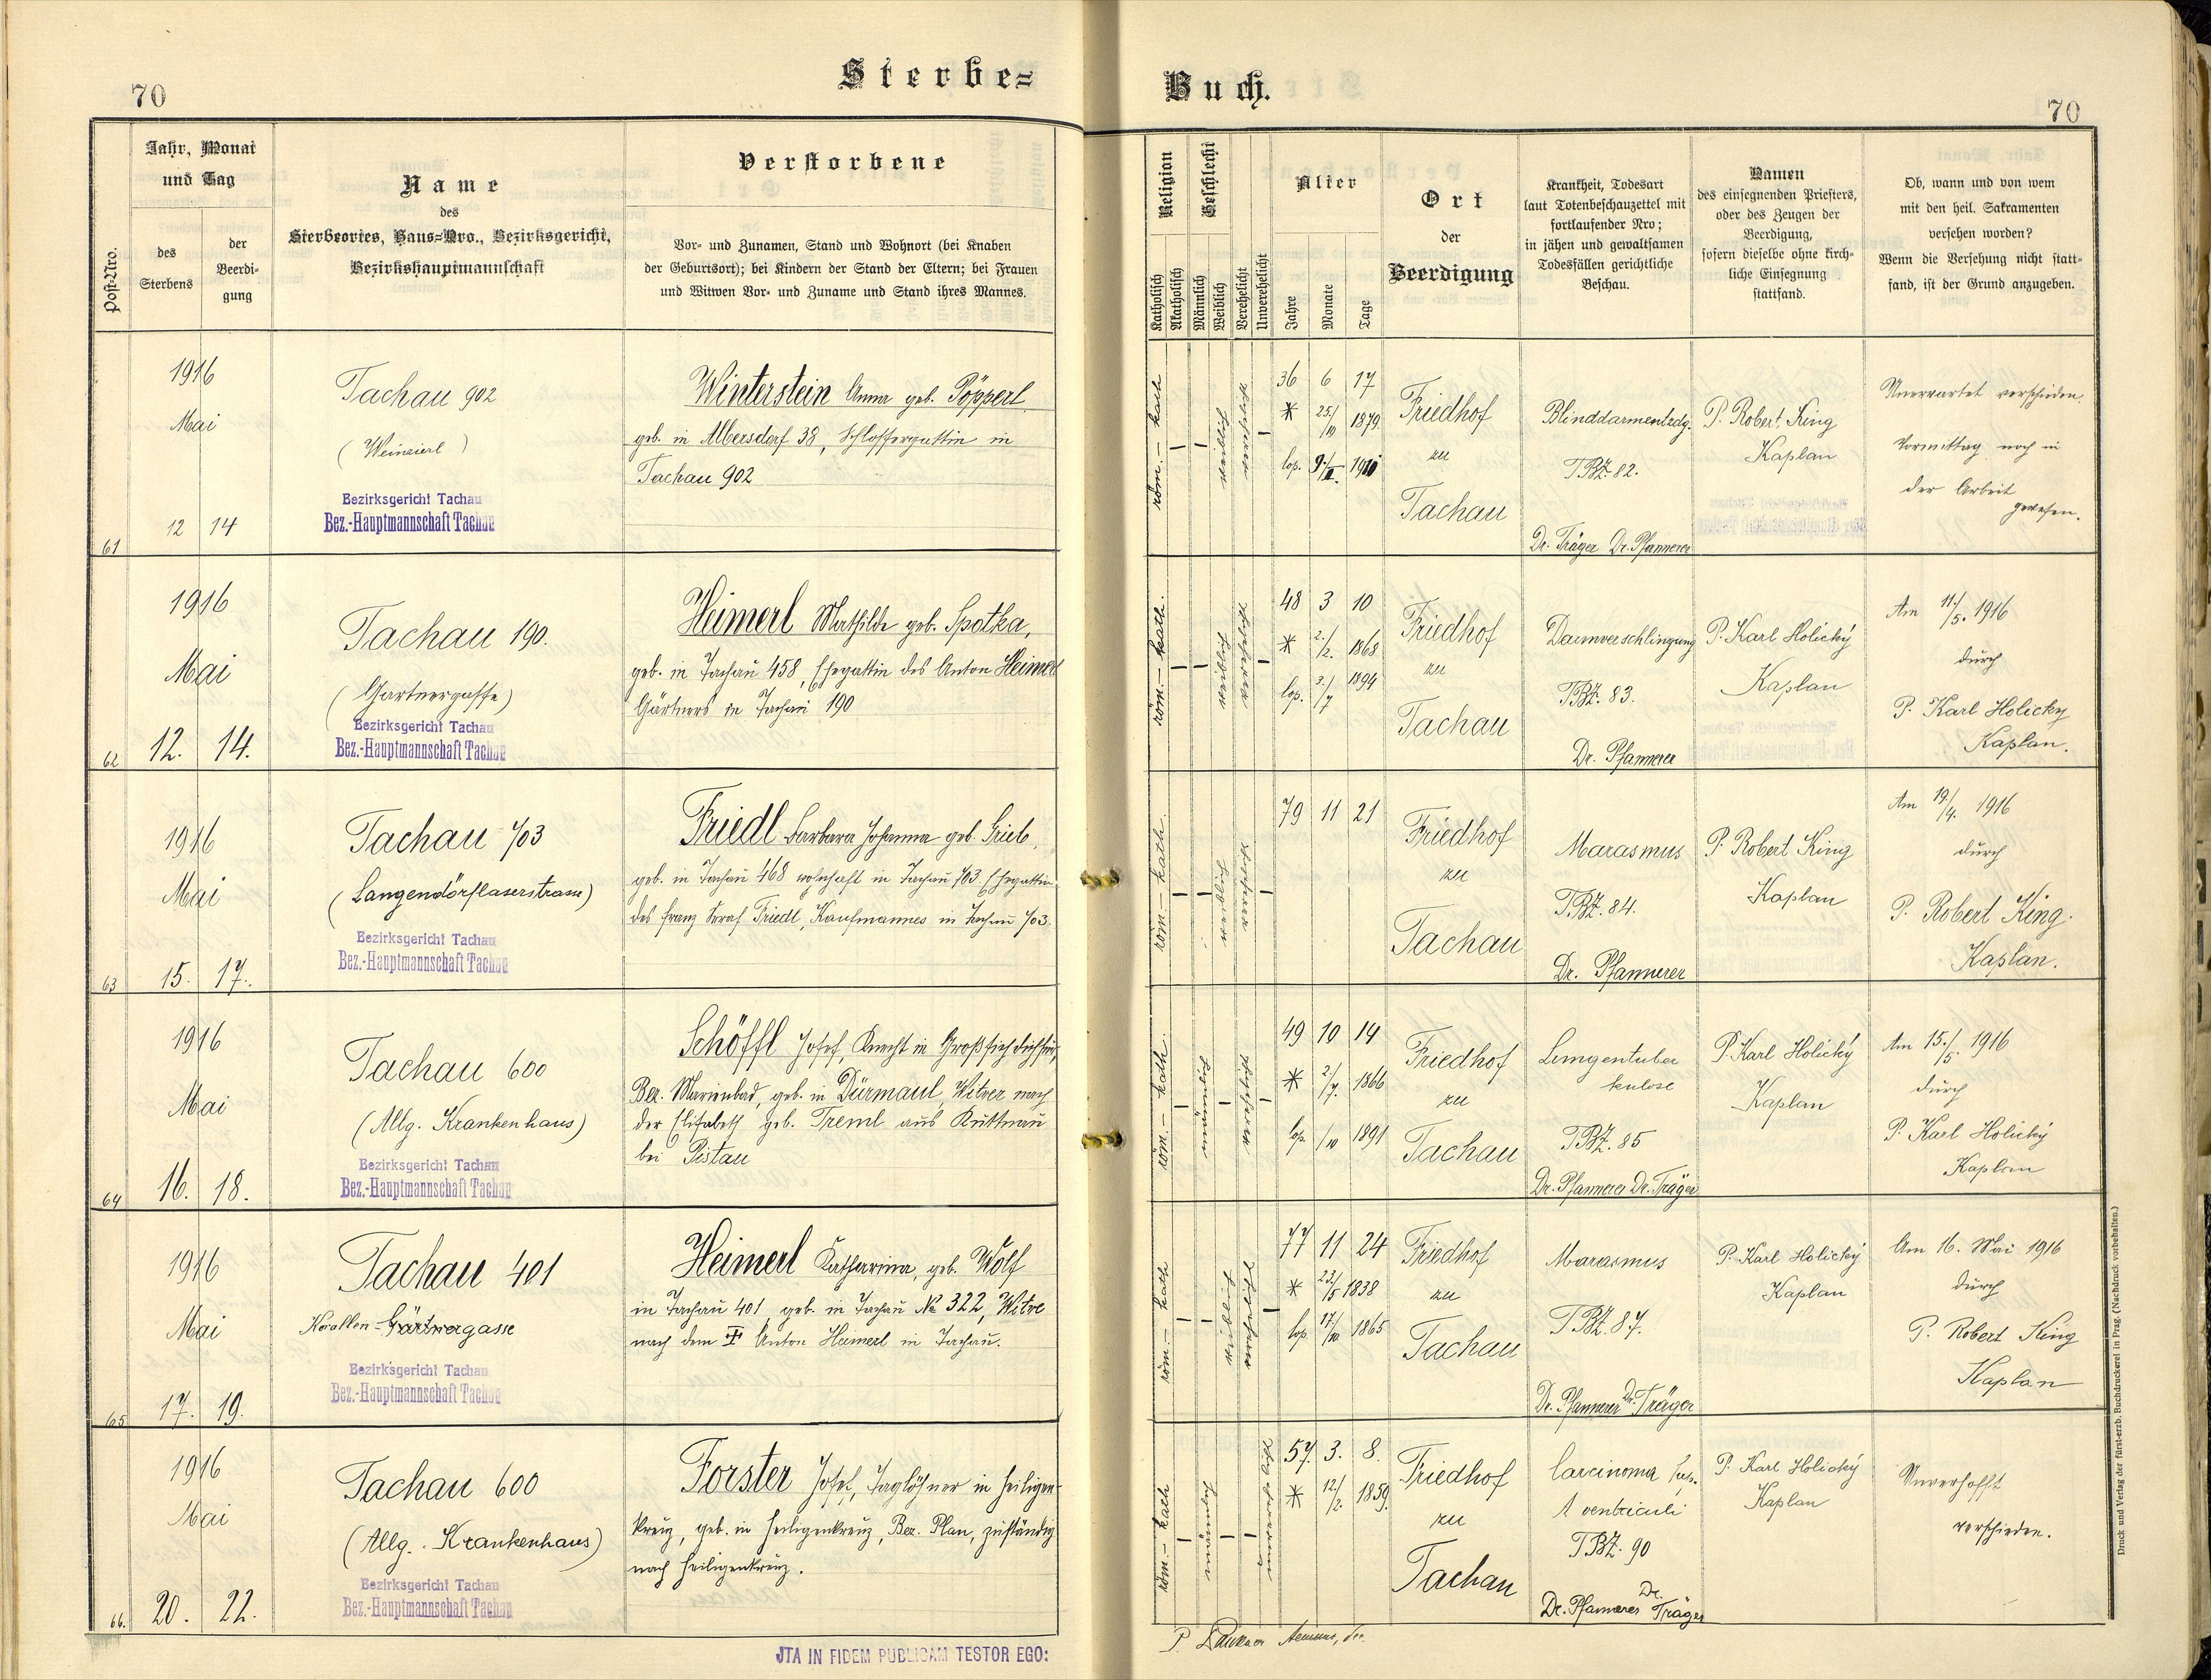 70
Sterbe=
Jahr, Monat
und Tag
Post-Nro.
des
Sterbens
der
Beerdi-
gung
Name
des
Sterbeortes, Haus-Nro., Bezirksgericht,
Bezirkshauptmannschaft
Verstorbene
Vor- und Zunamen, Stand und Wohnort (bei Knaben
der Geburtsort); bei Kindern der Stand der Eltern; bei Frauen
und Witwen Vor- und Zuname und Stand ihres Mannes.
61
1916
Mai
12 14
Tachau 902
(Weinzierl)
Bezirksgericht Tachau
Bez.-Hauptmannschaft Tachau
Winterstein Anna geb. Pöpperl
geb. in Albersdorf 38, Schlossergattin in
Tachau 902
62
1916
Mai
12. 14.
Tachau 190.
(Gartnergasse)
Bezirksgericht Tachau
Bez.-Hauptmannschaft Tachau
Heimerl Mathilde geb. Spotka,
geb. in Tachau 458, Ehegattin des Anton Heimerl
Gärtners in Tachau 190
63
1916
Mai
15. 17.
Tachau 703
(Langendörflaserstrasse)
Bezirksgericht Tachau
Bez.-Hauptmannschaft Tachau
Friedl Barbara Johanna geb. Grieb,
geb. in Tachau 468 wohnhaft in Tachau 703 Ehegattin
des Franz Seraf Friedl, Kaufmannes in Tachau 703.
64
1916
Mai
16. 18.
Tachau 600
(Allg. Krankenhaus)
Bezirksgericht Tachau
Bez.-Hauptmannschaft Tachau
Schöffl Josef, Knecht in
Bez. Marienbad, geb. in Dürmaul, Witwer nach
der Elisabeth geb. Treml aus Kuttnau
bei Pistau
65
1916
Mai
17. 19.
Tachau 401
Korallen-Gärtnergasse
Bezirksgericht Tachau
Bez.-Hauptmannschaft Tachau
Heimerl Katharina, geb. Wolf
in Tachau 401 geb. in Tachau No 322, Witwe
nach dem Anton Heimerl in Tachau.
66.
1916
Mai
20. 22.
Tachau 600
(Allg. Krankenhaus)
Bezirksgericht Tachau
Bez.-Hauptmannschaft Tachau
Forster Josef, Taglöhner in Heiligen-
kreuz, geb. in Heiligenkreuz, Bez. Plan, zuständig
nach Heiligenkreuz.
JTA IN FIDEM PUBLICAM TESTOR EGO:
Buch.
70
Religion
Katholisch
Akatholisch
Geschlecht
Männlich
Weiblich
Verehelicht
Unverehelicht
Alter
Jahre
Monate
Tage
Ort
der
Beerdigung
Krankheit, Todesart
laut Totenbeschauzettel mit
fortlaufender Nro;
in jähen und gewaltsamen
Todesfällen gerichtliche
Beschau.
Namen
des einsegnenden Priesters,
oder des Zeugen der
Beerdigung,
sofern dieselbe ohne kirch-
liche Einsegnung
stattfand.
Ob, wann und von wem
mit den heil. Sakramenten
versehen worden?
Wenn die Versehung nicht statt-
fand, ist der Grund anzugeben.
röm. - kath
weiblich
verehelicht
36 6 17
* 25./10 1879
cop. 9./II. 1910
Friedhof
zu
Tachau
Blinddarmentzdg.
TBZ. 82.
Dr. Träger Dr. Pfannerer
P. Robert King
Kaplan
Unerwartet verschieden.
Vormittag noch in
der Arbeit
gewesen.
röm. - kath.
weiblich
verehelicht
48 3 10
* 2./2. 1868
cop. 3./7 1894
Friedhof
zu
Tachau
Darmverschlingung
TBZ. 83.
Dr. Pfannerer
P. Karl Holický
Kaplan
Am 11./5. 1916
durch
P. Karl Holicky
Kaplan.
röm. - kath.
weiblich
79 11 21
Friedhof
zu
Tachau
Marasmus
TBZ. 84.
Dr. Pfannerer
P. Robert King
Kaplan
Am 19./4. 1916
durch
P. Robert King.
Kaplan.
röm. - kath.
männlich
49 10 14
* 2./7. 1866
cop. /10 1891
Friedhof
zu
Tachau
Lungentuber
kulose
TBZ. 85
Dr. Pfannerer Dr. Träger
P. Karl Holický
Kaplan
Am 15./5. 1916
durch
P. Karl Holický
Kaplan
röm. - kath
weiblich
verehelicht
77 11 24
* 23./5 1838
cop. 17./10 1865
Friedhof
zu
Tachau
Marasmus
TBZ. 87.
Dr. Pfannerer Dr. Träger
P. Karl Holický
Kaplan
Am 16. Mai 1916
durch
P. Robert King
Kaplan
röm. - kath
männlich
unverehelicht
57. 3. 8.
* 12./2. 1859.
Friedhof
zu
Tachau
Carcinoma
ventriculi
TBZ. 90
Dr. Pfannerer Dr. Träger
P. Karl Holický
Kaplan
Unverhofft
verschieden.
Druck und Verlag der fürst-erzb. Buchdruckerei in Prag. (Nachdruck vorbehalten.)